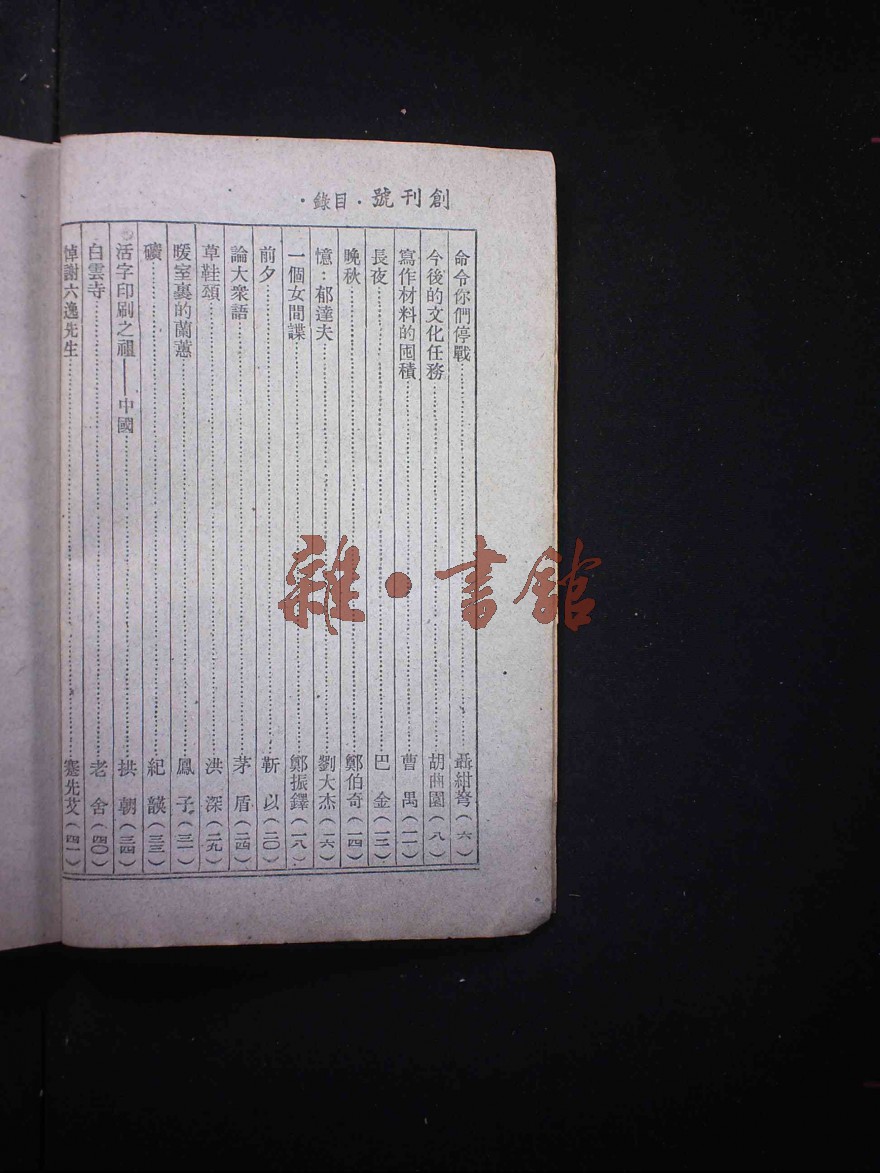 創刊號·目錄·
命令你們停戰……聶紺弩(六)
今後的文化任務……胡曲園(八)
寫作材料的囤積……曹禺(一一)
長夜……巴金(一二)
晚秋……鄭伯奇(一四)
憶：郁達夫……劉大杰(一六)
一個女間諜……鄭振鐸(一八)
前夕……靳以(二〇)
論大衆語……茅盾(二四)
草鞋頌……洪深(二九)
暖室裏的蘭蕙……鳳子(三一)
礦……紀鍈(三三)
活字印刷之祖——中國……拱朝(三四)
白雲寺……老舍(四〇)
悼謝六逸先生……蹇先艾(四一)
雜·書館